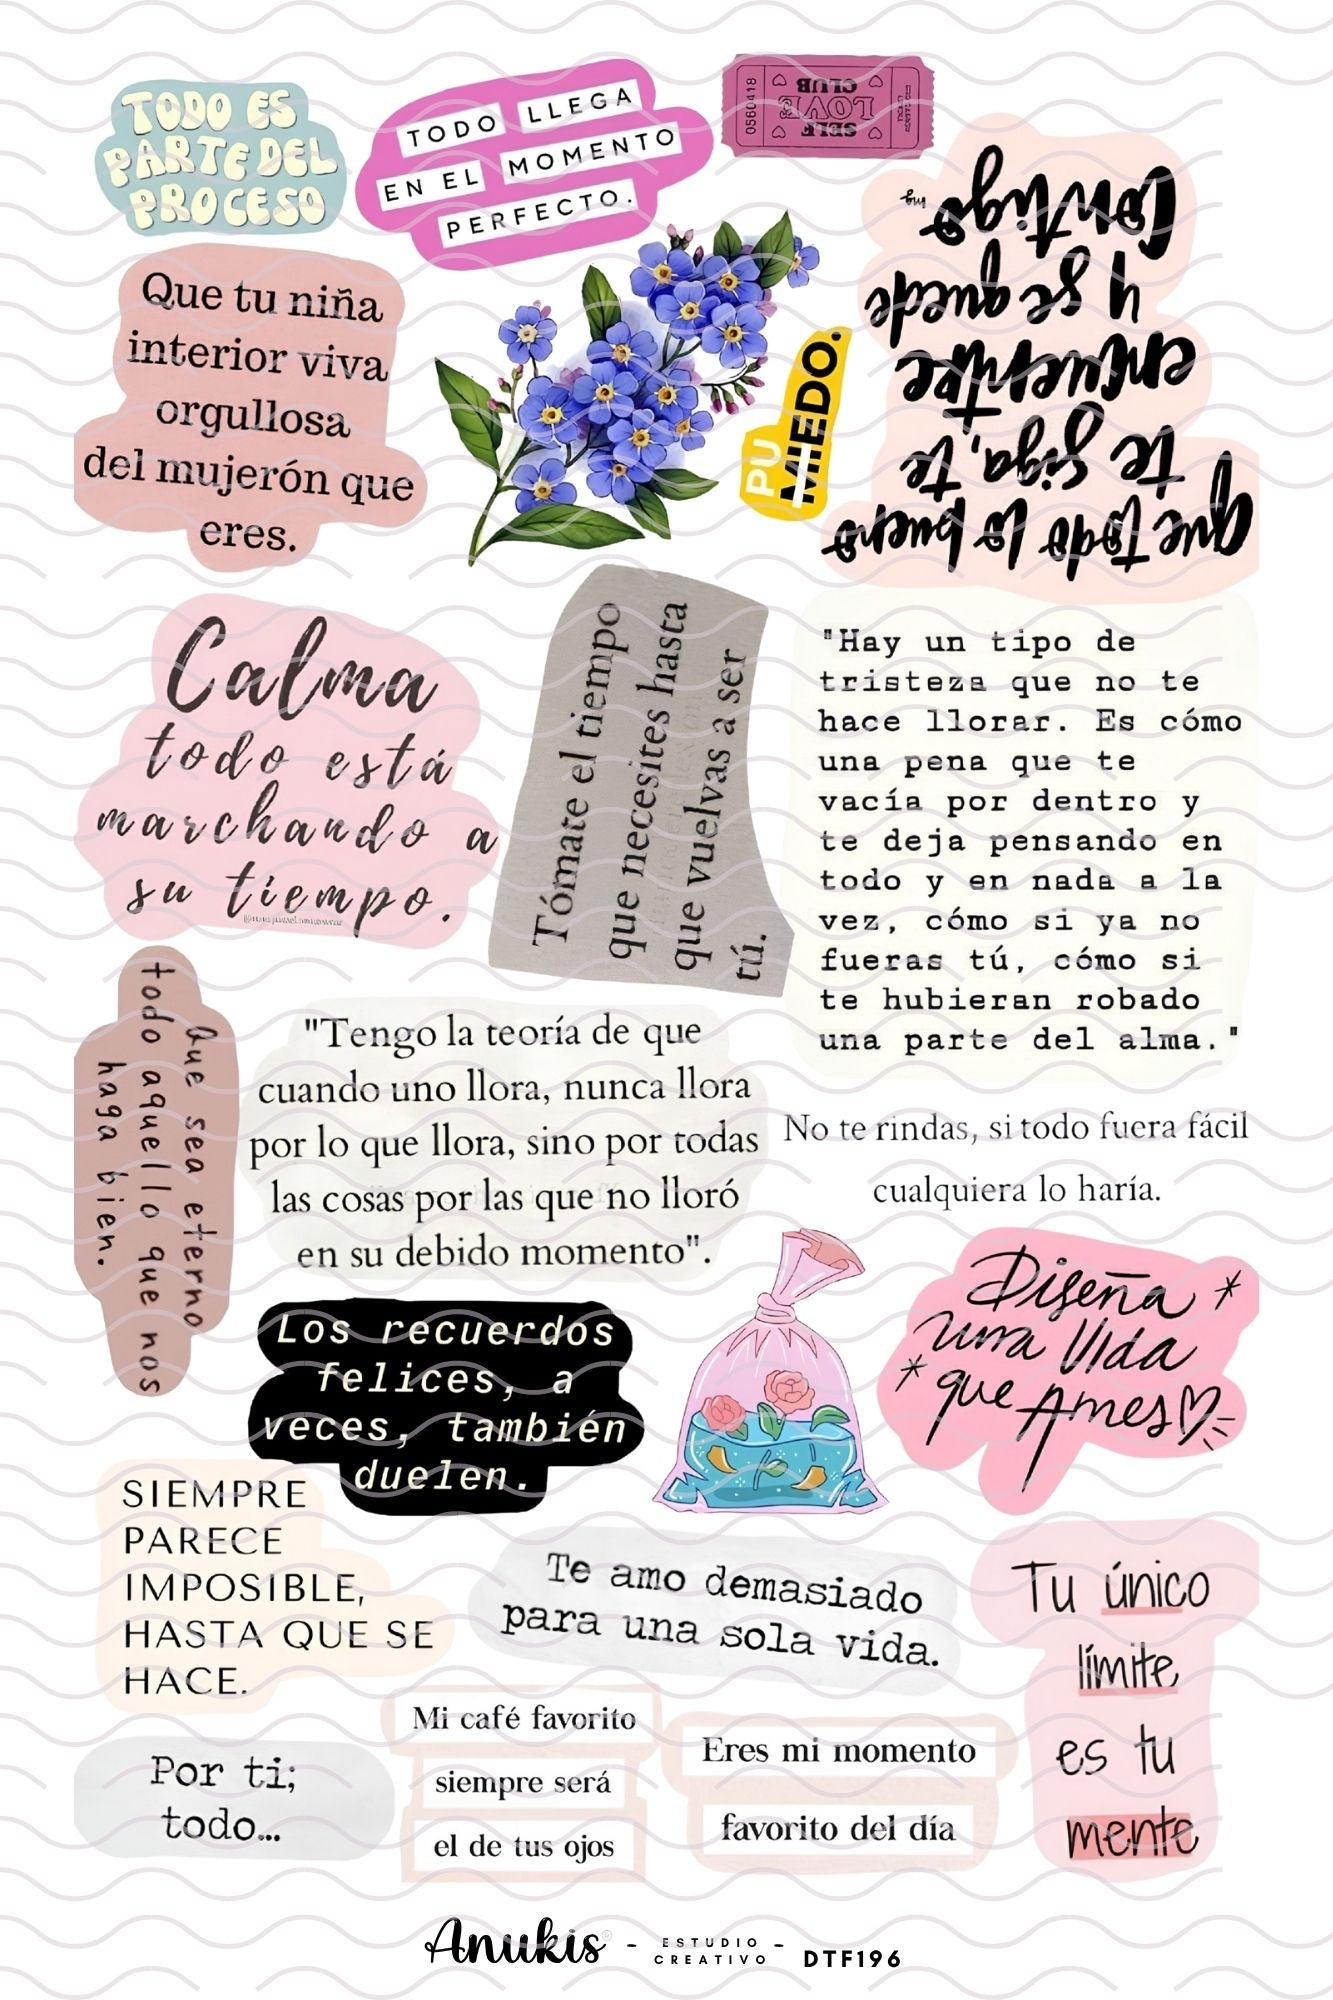 TODO ES
PARTE DEL
PROCESO
TODO LLEGA
EN EL MOMENTO
PERFECTO.
0560418
SELF
LOVE
CLUB
Que todo lo bueno
te siga, te
encuentre
y se quede
Contigo
Que tu niña
interior viva
orgullosa
del mujerón que
eres.
PU
MIEDO.
Calma
todo está
marchando a
su tiempo.
Tómate el tiempo
que necesites hasta
que vuelvas a ser
tú.
"Hay un tipo de
tristeza que no te
hace llorar. Es cómo
una pena que te
vacía por dentro y
te deja pensando en
todo y en nada a la
vez, cómo si ya no
fueras tú, cómo si
te hubieran robado
una parte del alma."
Que sea eterno
todo aquello que nos
haga bien.
"Tengo la teoría de que
cuando uno llora, nunca llora
por lo que llora, sino por todas
las cosas por las que no lloró
en su debido momento".
No te rindas, si todo fuera fácil
cualquiera lo haría.
Los recuerdos
felices, a
veces, también
duelen.
Diseña
una Vida
que Ames
SIEMPRE
PARECE
IMPOSIBLE,
HASTA QUE SE
HACE.
Te amo demasiado
para una sola vida.
Tu único
límite
es tu
mente
Por ti;
todo...
Mi café favorito
siempre será
el de tus ojos
Eres mi momento
favorito del día
Anukis® - ESTUDIO CREATIVO - DTF196